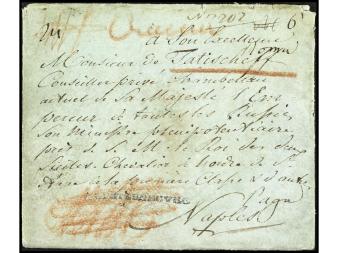 N 7202
6
à Son Excellence
Monsieur de Tatischeff
Conseiller privé Chambellan
actuel de Sa Majesté l'Em
pereur de toutes les Russies
son Ministre plenipotentiaire
près S. M. le Roi des Deux
Siciles Chevalier de l'ordre de St
Anne de la première Classe & d'autres
à
Naples